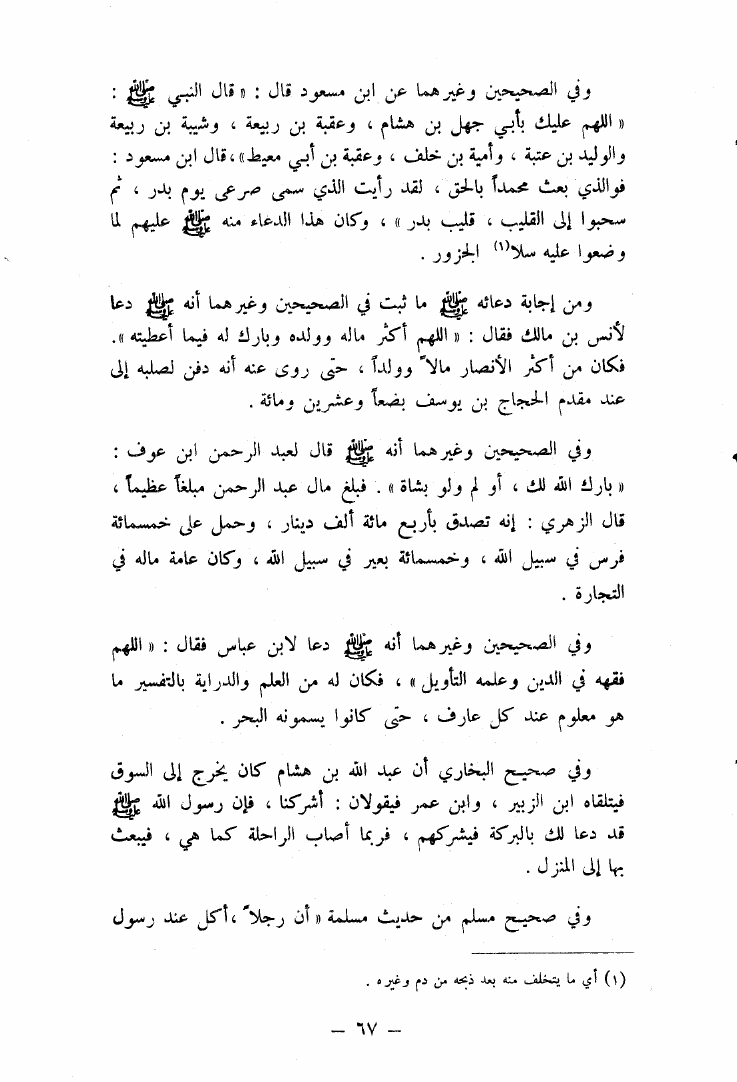 وفي الصحيحين وغيرهما عن ابن مسعود قال : « قال النبي ﷺ :
« اللهم عليك بأبي جهل بن هشام ، وعقبة بن ربيعة ، وشيبة بن ربيعة
والوليد بن عتبة ، وأمية بن خلف ، وعقبة بن أبي معيط»، قال ابن مسعود :
فوالذي بعث محمداً بالحق ، لقد رأيت الذي سمى صرعى يوم بدر ، ثم
سحبوا إلى القليب ، قليب بدر » ، وكان هذا الدعاء منه ﷺ عليهم لما
وضعوا عليه سلا(١) الجزور .
ومن إجابة دعائه ﷺ ما ثبت في الصحيحين وغيرهما أنه ﷺ دعا
لأنس بن مالك فقال : « اللهم أكثر ماله وولده وبارك له فيما أعطيته ».
فكان من أكثر الأنصار مالاً وولداً ، حتى روى عنه أنه دفن لصلبه إلى
عند مقدم الحجاج بن يوسف بضعاً وعشرين ومائة .
وفي الصحيحين وغيرهما أنه ﷺ قال لعبد الرحمن ابن عوف :
« بارك الله لك ، أو لم ولو بشاة » . فبلغ مال عبد الرحمن مبلغاً عظيماً ،
قال الزهري : إنه تصدق بأربع مائة ألف دينار ، وحمل على خمسمائة
فرس في سبيل الله ، وخمسمائة بعير في سبيل الله ، وكان عامة ماله في
التجارة .
وفي الصحيحين وغيرهما أنه ﷺ دعا لابن عباس فقال : « اللهم
فقهه في الدين وعلمه التأويل » ، فكان له من العلم والدراية بالتفسير ما
هو معلوم عند كل عارف ، حتى كانوا يسمونه البحر .
وفي صحيح البخاري أن عبد الله بن هشام كان يخرج إلى السوق
فيتلقاه ابن الزبير ، وابن عمر فيقولان : أشركنا ، فإن رسول الله ﷺ
قد دعا لك بالبركة فيشركهم ، فربما أصاب الراحلة كما هي ، فيبعث
بها إلى المنزل .
وفي صحيح مسلم من حديث مسلمة « أن رجلاً ، أكل عند رسول
(١) أي ما يتخلف منه بعد ذبحه من دم وغيره .
– ٦٧ –